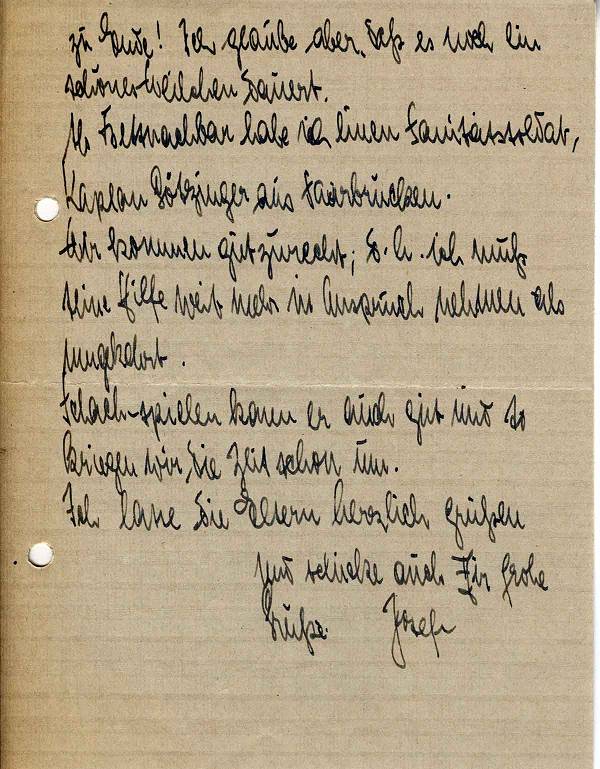 zu Ende! Ich glaube aber, daß es noch ein
schönes Weilchen dauert.
Als Bettnachbar habe ich einen Sanitätssoldat,
Kaplan Götzinger aus Saarbrücken.
Wir kommen gut zurecht; d.h. ich muß
seine Hilfe weit mehr in Anspruch nehmen als
umgekehrt.
Schach-spielen kann er auch gut und so
kriegen wir die Zeit schon um.
Ich lasse die Eltern herzlich grüßen
und schicke auch Dir frohe
Grüße. Josef